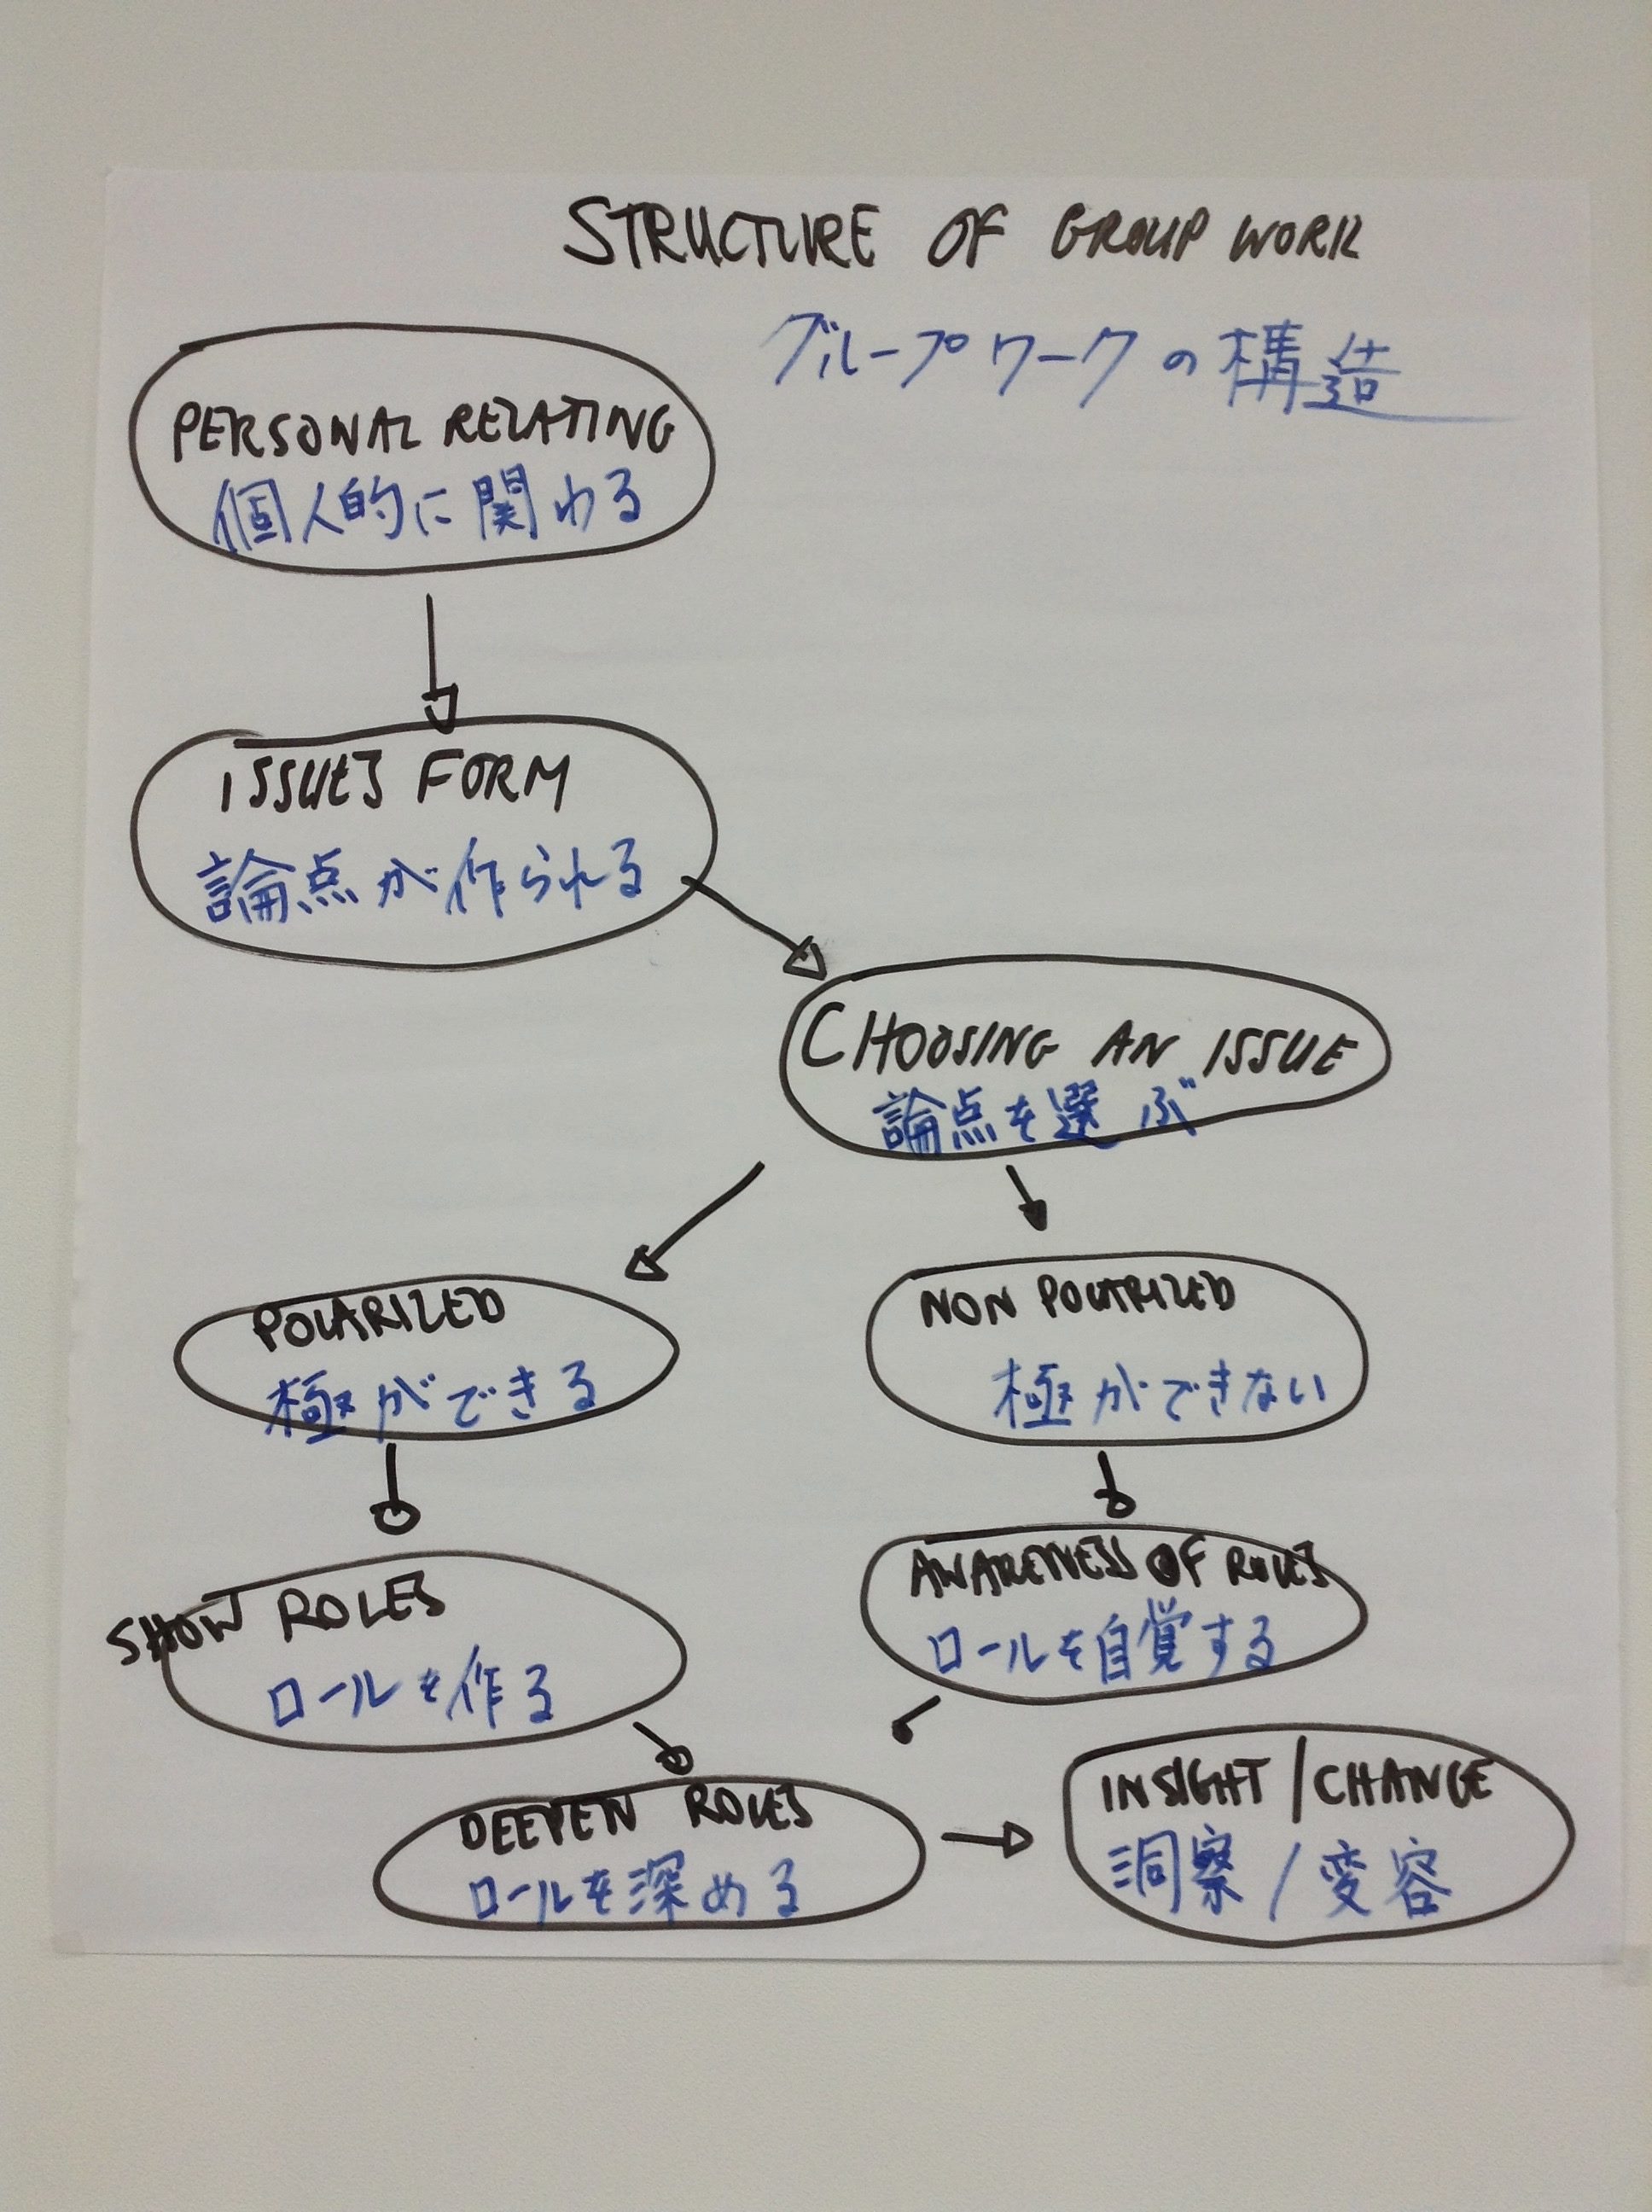 STRUCTURE OF GROUP WORK
グループワークの構造
PERSONAL RELATING
個人的に関わる
ISSUES FORM
論点が作られる
CHOOSING AN ISSUE
論点を選ぶ
POLARIZED
極ができる
NON POLARIZED
極ができない
SHOW ROLES
ロールを作る
AWARENESS OF ROLES
ロールを自覚する
DEEPEN ROLES
ロールを深める
INSIGHT / CHANGE
洞察 / 変容